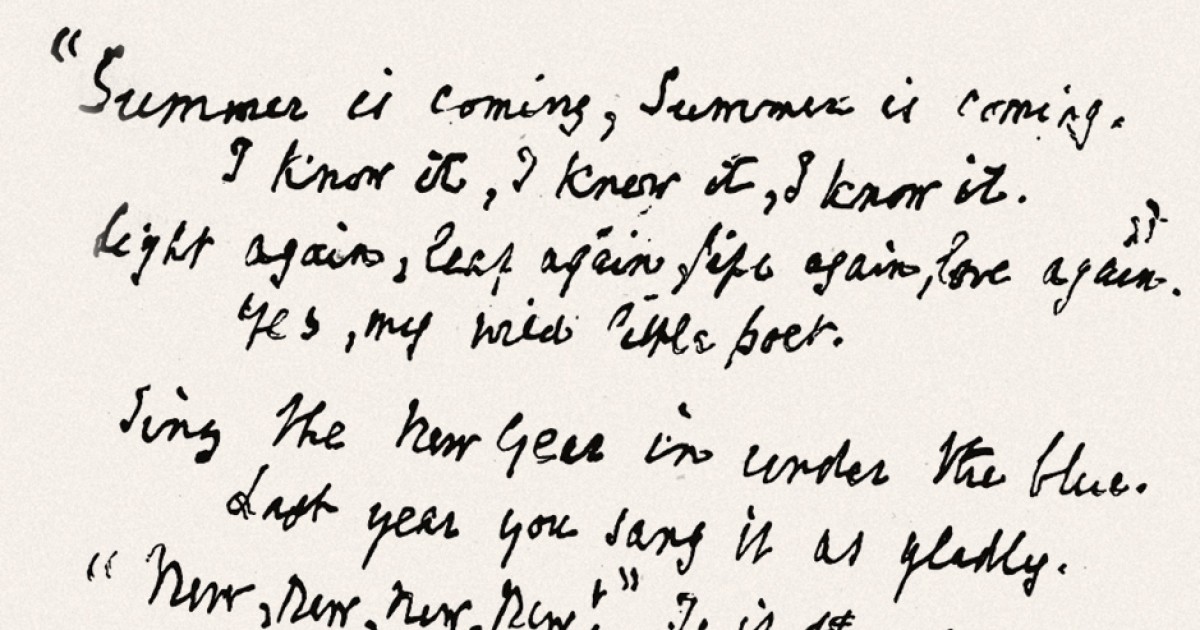 "Summer is coming, Summer is coming.
I know it, I know it, I know it.
Light again, leaf again, life again, love again."
Yes, my wild little poet.
Sing the new year in under the blue.
Last year you sang it as gladly.
"New, new, new, new!" Is it